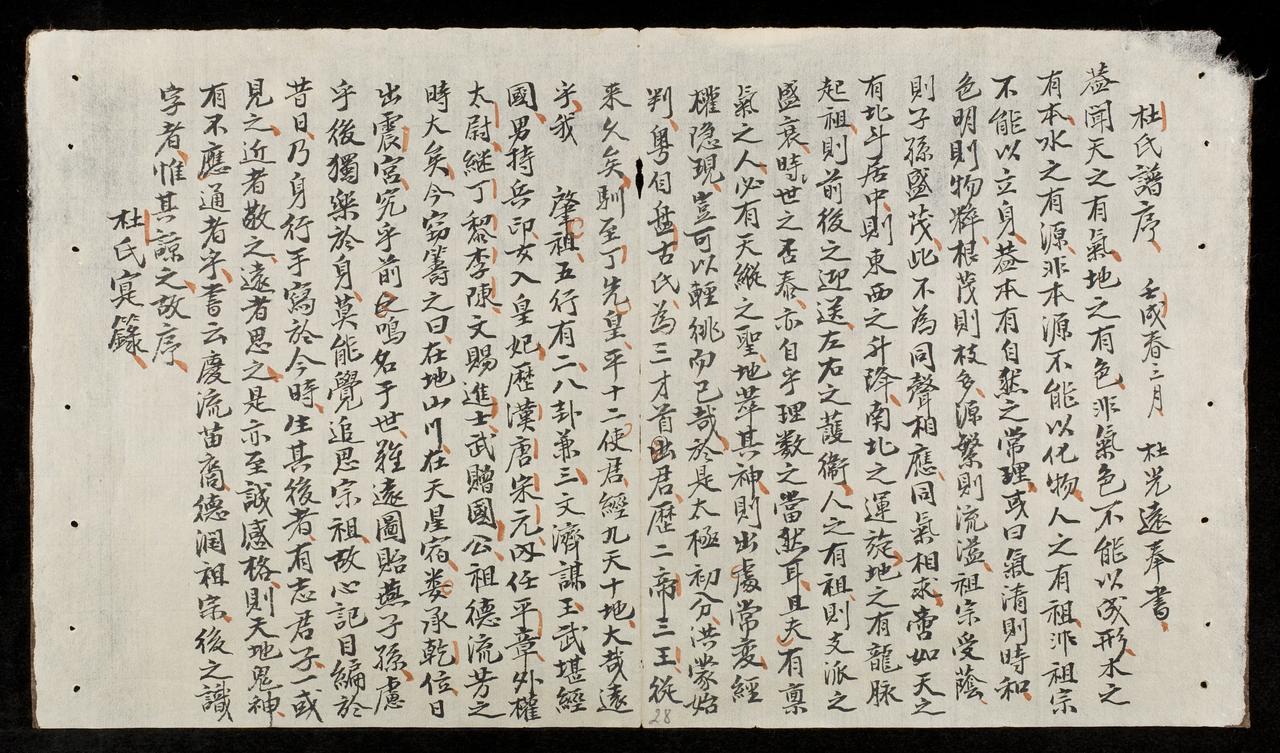 杜氏譜序 壬戌春三月 杜光遠奉書
蓋聞天之有氣地之有色非氣色不能以成形水之
有本水之有源非本源不能以化物人之有祖非祖宗
不能以立身蓋本有自然之常理或曰氣清則時和
色明則物粹根茂則枝多源繁則流溢祖宗受蔭
則子孫盛茂此不為同聲相應同氣相求嘗如天之
有北斗居中則東西之升降南北之運旋地之有龍脉
起祖則前後之迎送左右之護衛人之有祖則支派之
盛衰時世之否泰亦自乎理数之當然耳且夫有稟
氣之人必有天縱之聖地萃其神則出處常変經
權隐現豈可以輕誂而已哉於是太極初分洪蒙始
判粵自盤古氏為三才首出君歷二帝三王從
來久矣馴至丁先皇平十二使君經九天十地大哉遠
乎我 肇祖五行有二八卦兼三文濟謀王武堪經
國男持兵印女入皇妃歷漢唐宋元内任平章外權
太尉継丁黎李陳文賜進士武贈國公祖德流芳之
時大矣今窃籌之曰在地山川在天星宿娄承乾位日
出震宮究乎前之鳴名于世難遠圖貽燕子孫慮
乎後獨樂於身莫能覺追思宗祖故心記目編於
昔日乃身行手寫於今時生其後者有志君子一或
見之近者敬之遠者思之是亦至誠感格則天地鬼神
有不應通者乎書云慶流苗裔德潤祖宗後之識
字者惟其諒之故序
杜氏寔籙